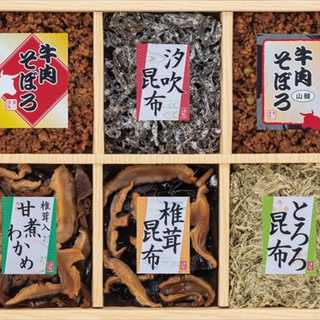 牛肉
そぼろ
汐吹
昆布
牛肉
そぼろ
山椒
椎茸入
甘煮
わかめ
椎茸
昆布
とろろ
昆布